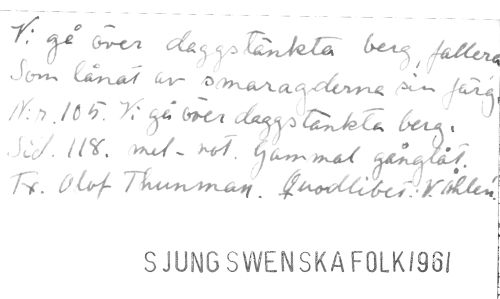 Vi gå över daggstänkta berg, fallera
Som lånat av smaragderna sin färg.
N:r. 105. Vi gå över daggstänkta berg.
Sid. 118. mel-not. Gammal gånglåt.
Tx. Olof Thunman. Quodlibet: V. Åhlén.
SJUNG SWENSKA FOLK 1961